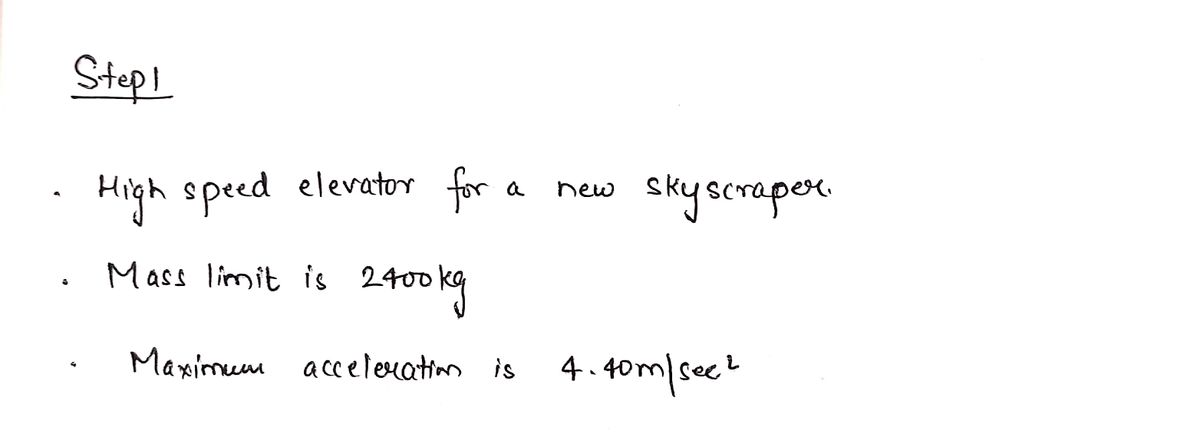 Step1
. High speed elevator for a new skyscraper.
. Mass limit is 2400kg
. Maximum acceleration is 4.40m/sec²